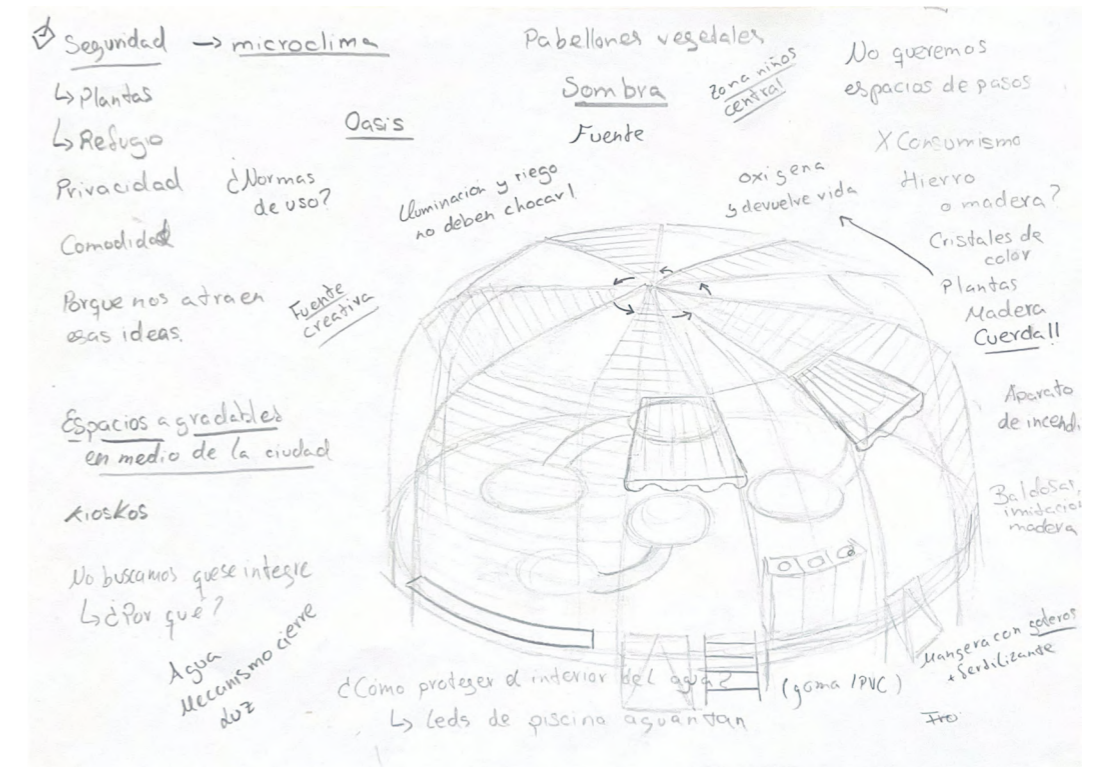 Seguridad → microclima
↳ Plantas
↳ Refugio
Privacidad
Comodidad
Porque nos atraen
esas ideas.
Espacios agradables
en medio de la ciudad
Kioskos
No buscamos que se integre
↳ ¿Por qué?
Agua
Mecanismo cierre
Luz
Oasis
¿Normas
de uso?
Fuente
creativa
Pabellones vegetales
Sombra
Fuente
zona niños
central
Iluminación y riego
no deben chocar!
oxigena
y devuelve vida
No queremos
espacios de pasos
X Consumismo
Hierro
o madera?
Cristales de
color
Plantas
Madera
Cuerda!!
Aparato
de incendi
Baldosas,
imitacion
madera
Manguera con goteros
+ fertilizante
¿Cómo proteger el interior del agua?
↳ Leds de piscina aguantan
(goma / PVC)